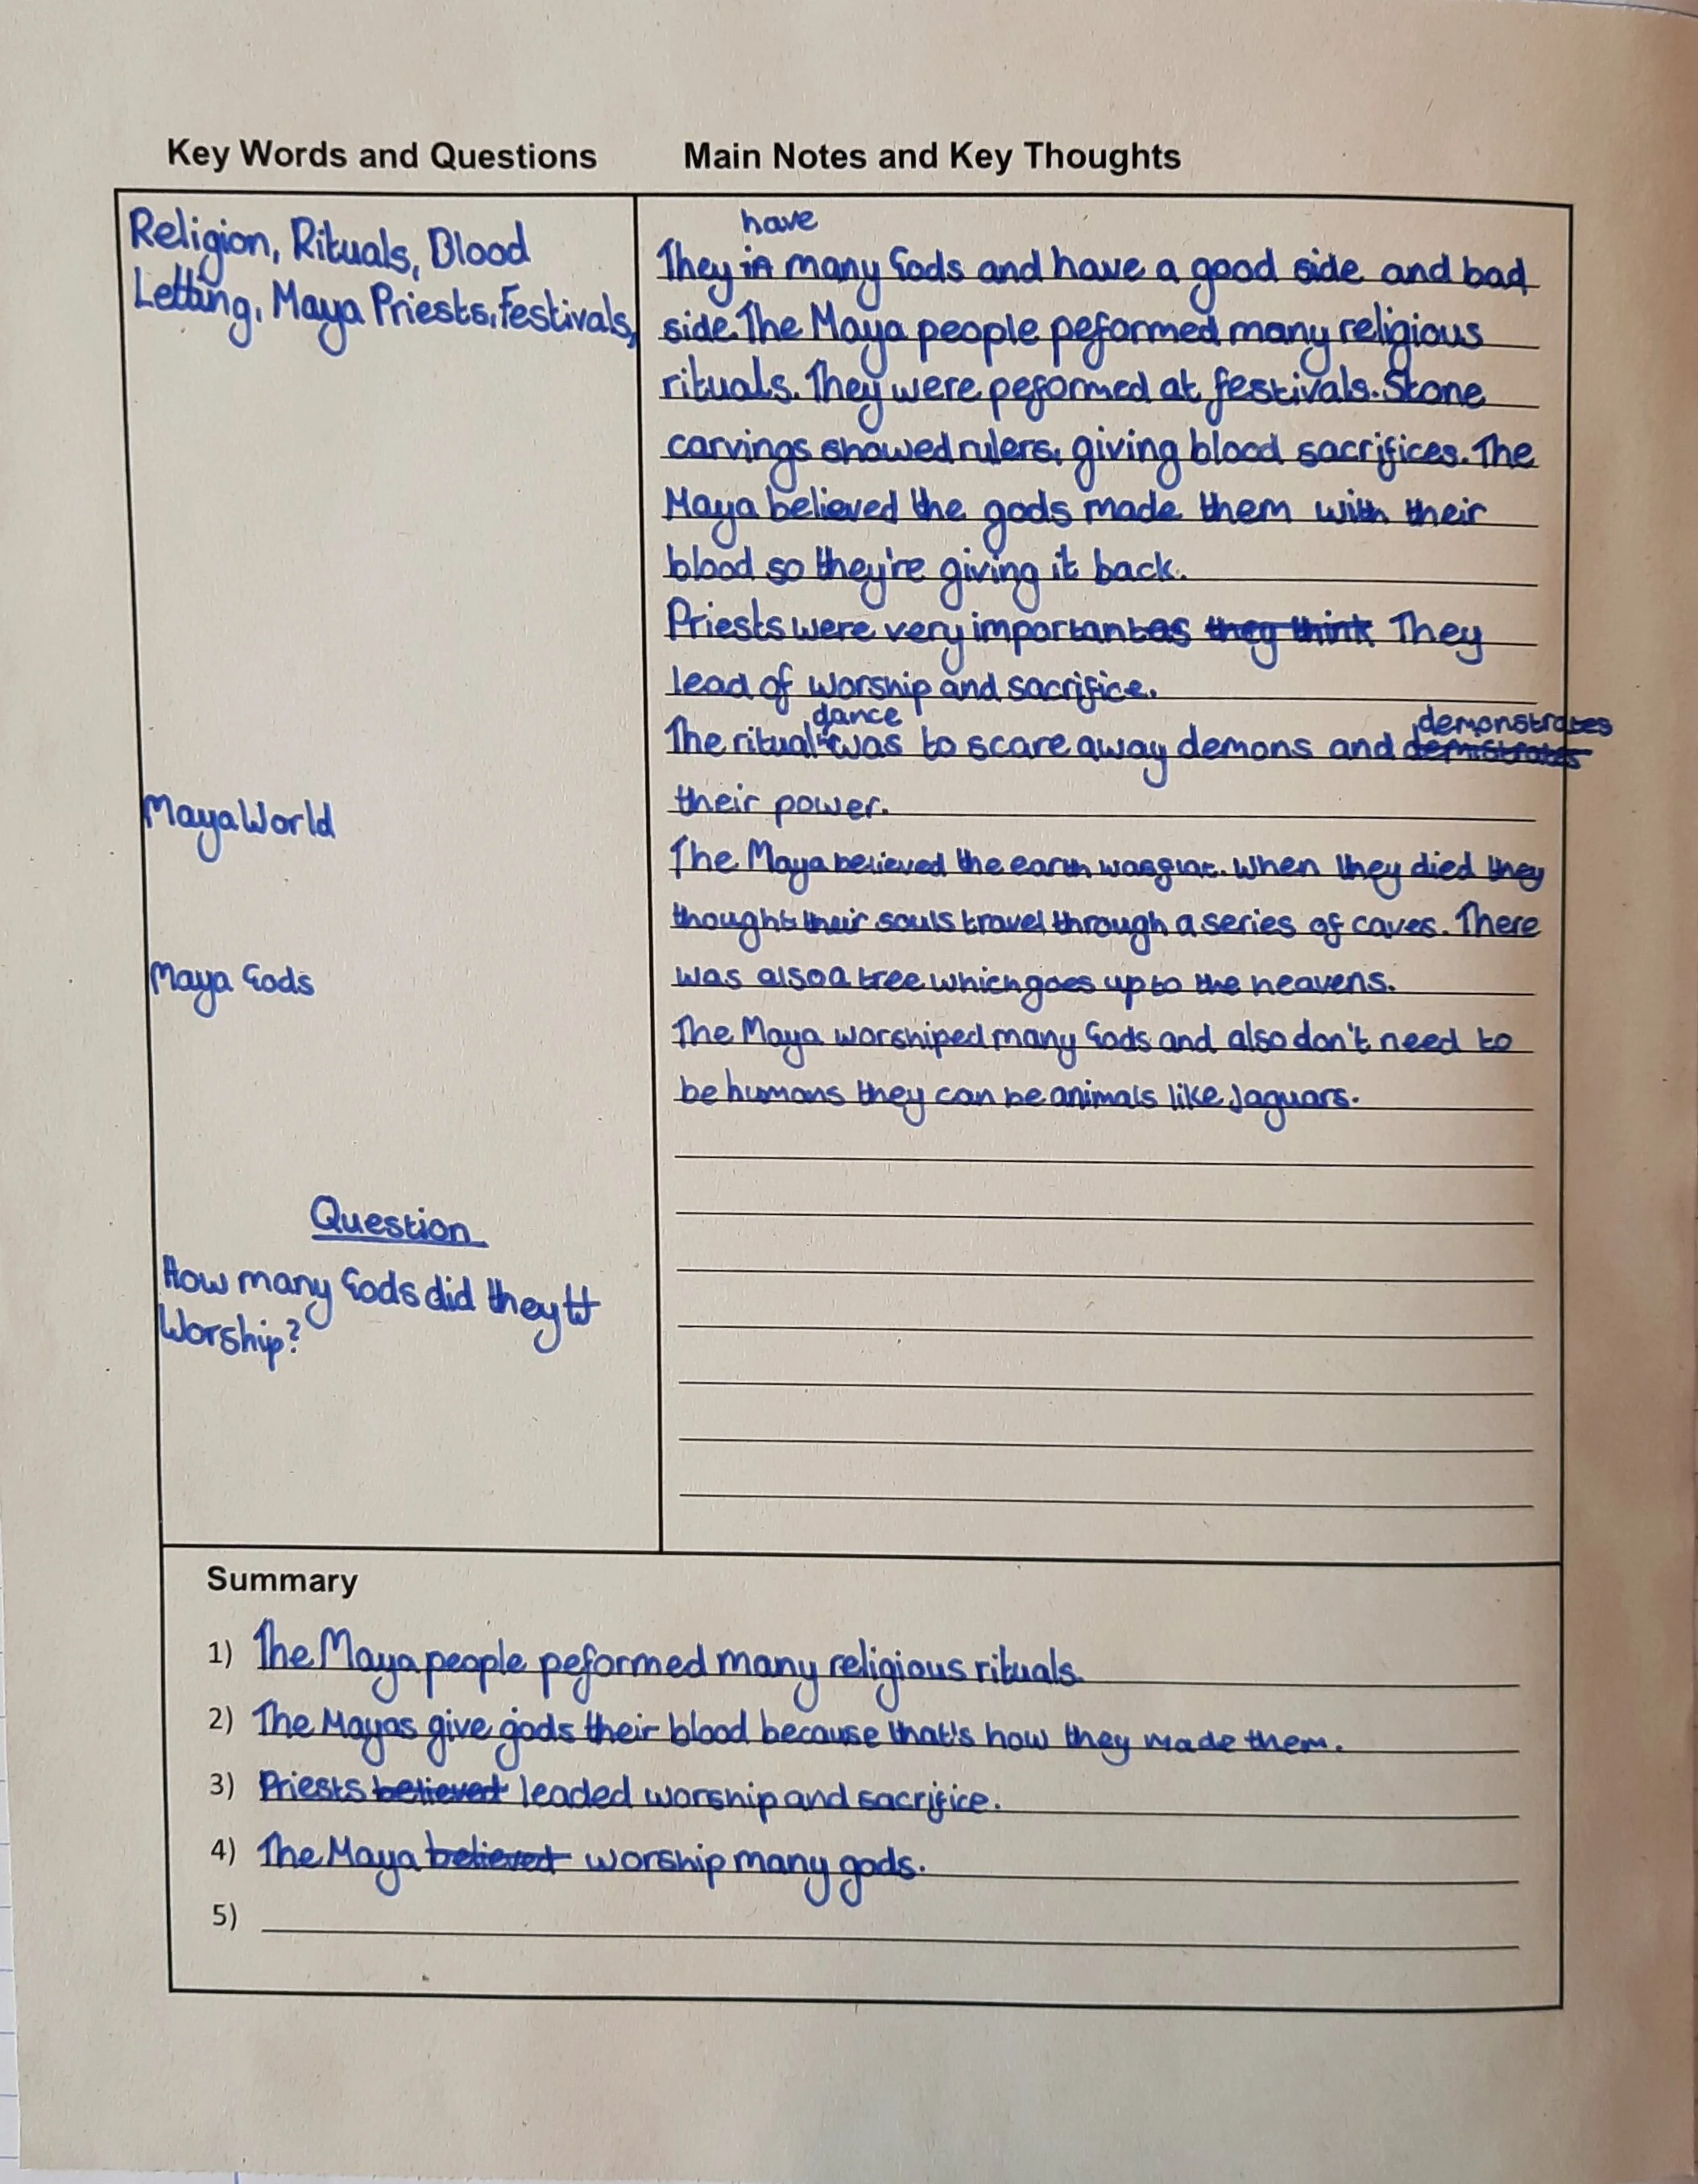 Key Words and Questions
Main Notes and Key Thoughts
Religion, Rituals, Blood
Letting, Maya Priests, Festivals,
Maya World
Maya Gods
Question
How many Gods did they
Worship?
have
They in many Gods and have a good side and bad
side. The Maya people peformed many religious
rituals. They were peformed at festivals. Stone
carvings showed rulers, giving blood sacrifices. The
Maya believed the gods made them with their
blood so they're giving it back.
Priests were very important as they think They
lead of worship and sacrifice.
dance demonstrates
The ritual was to scare away demons and demistrates
their power.
The Maya believed the earth was flat. When they died they
thought their souls travel through a series of caves. There
was also a tree which goes up to the heavens.
The Maya worshiped many Gods and also don't need to
be humans they can be animals like Jaguars.
Summary
1) The Maya people peformed many religious rituals.
2) The Mayas give gods their blood because that's how they made them.
3) Priests believed leaded worship and sacrifice.
4) The Maya believed worship many gods.
5)